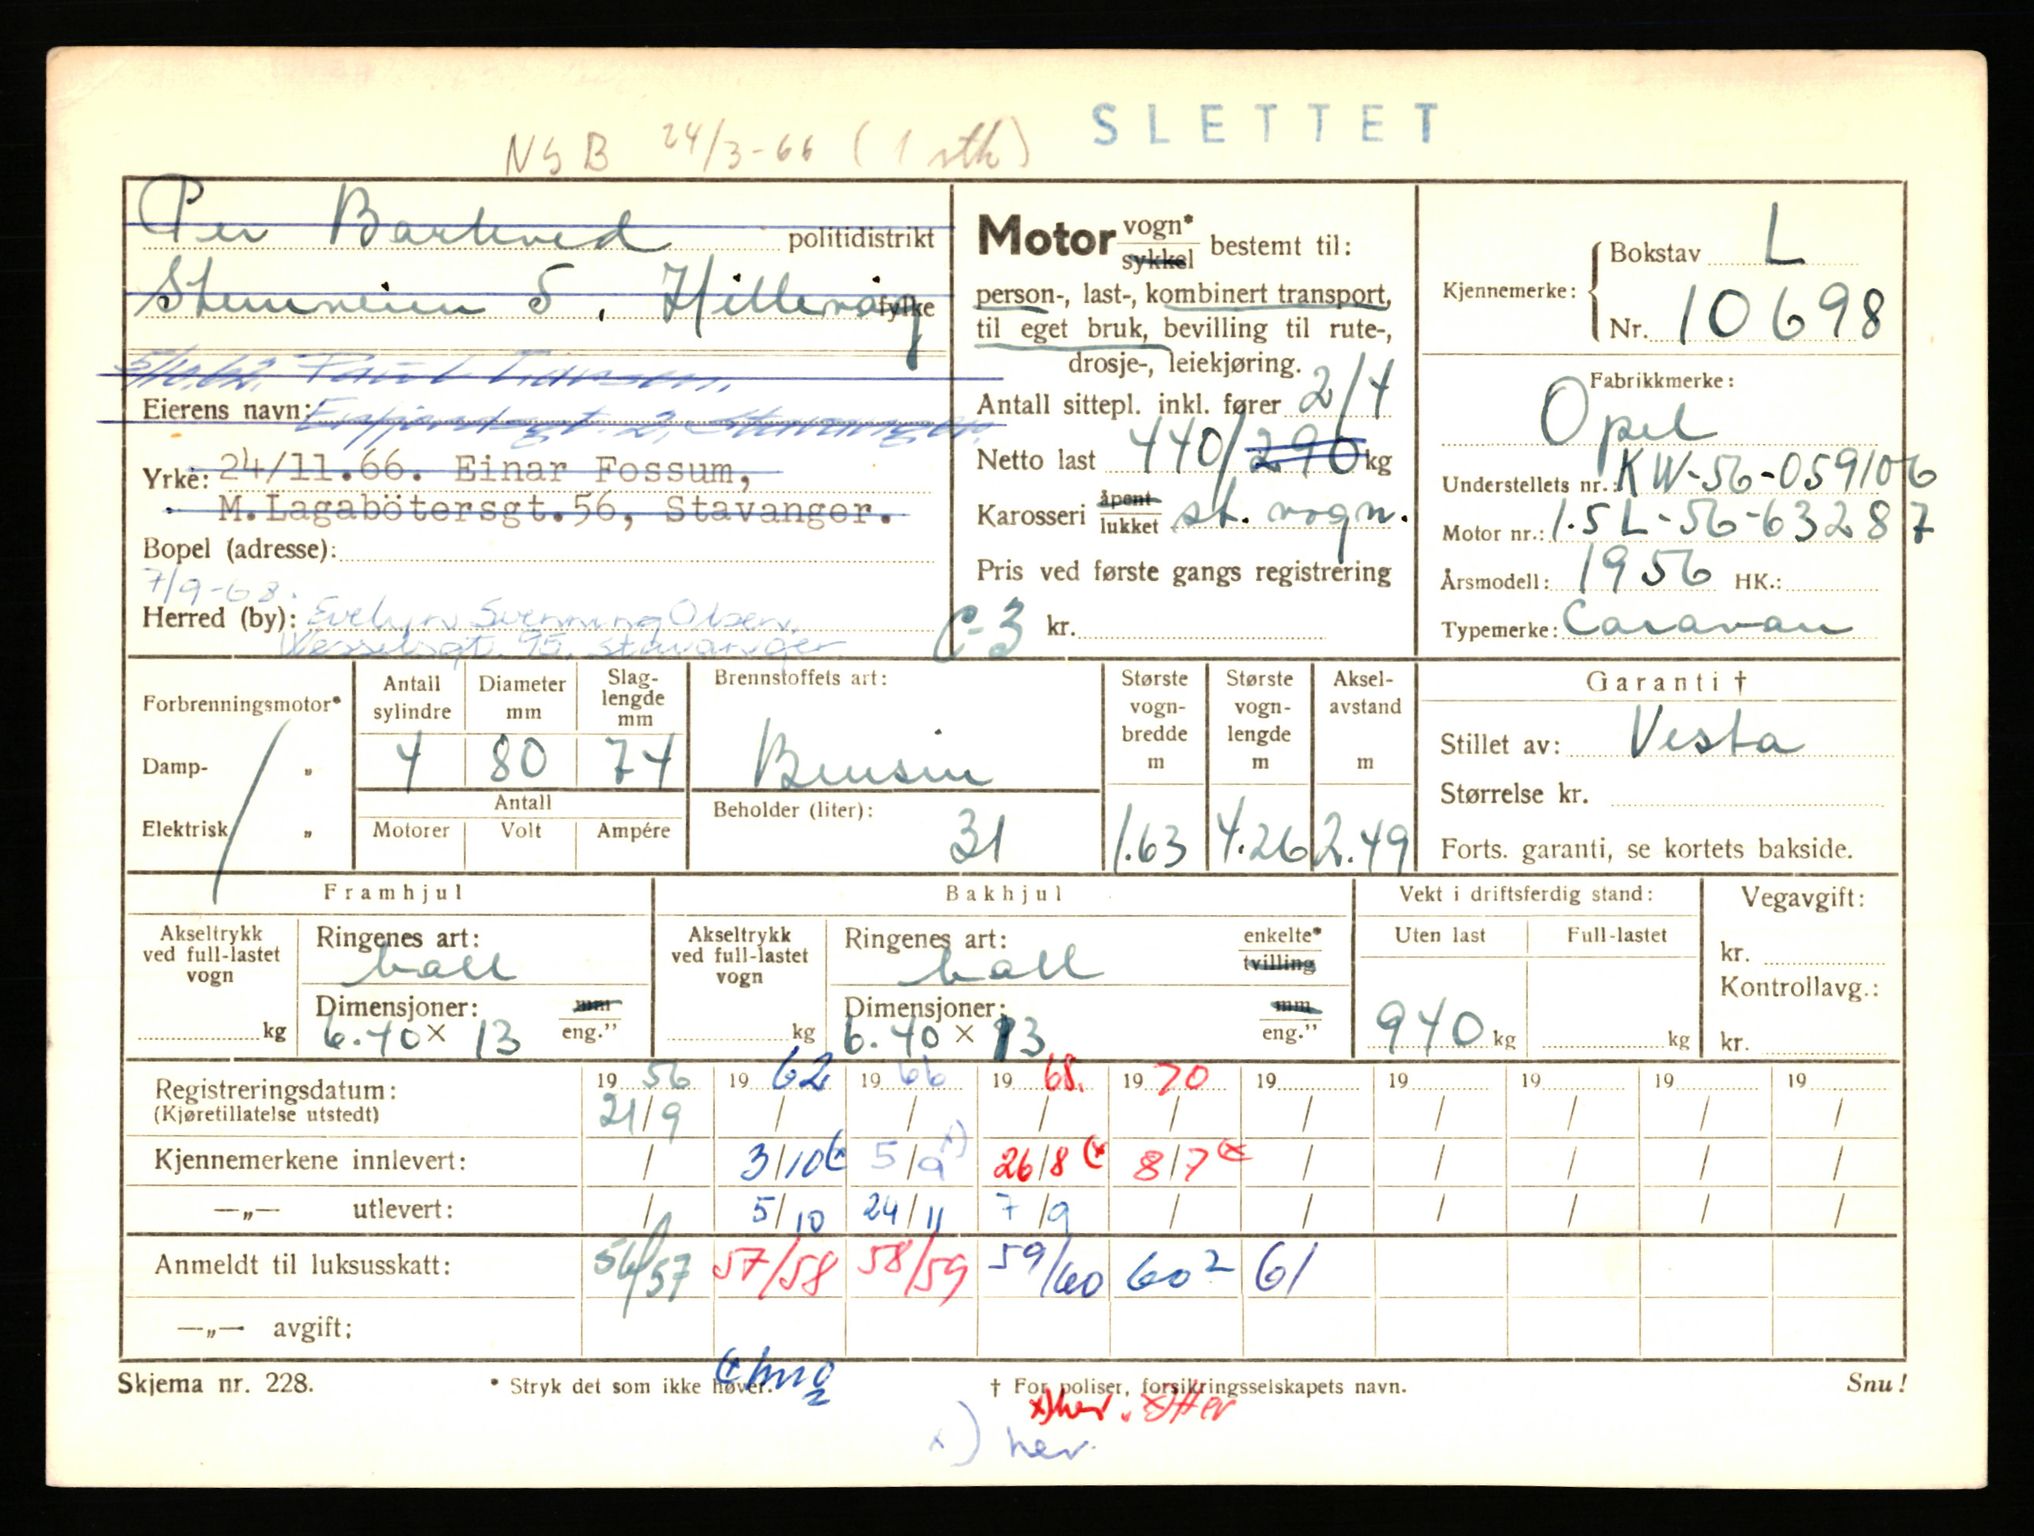 SLETTET
NSB 24/3-66 (1 stk)
Per Barkved politidistrikt
5, Hillevåg fylke
5/10.62.
Eierens navn:
Yrke: 24/11.66. Einar Fossum,
M.Lagabötersgt.56, Stavanger.
Bopel (adresse):
7/9-68.
Herred (by): Evelyn Svenning Olsen,
Wesselsgt. 95, Stavanger
Motor vogn* sykkel bestemt til:
person-, last-, kombinert transport,
til eget bruk, bevilling til rute-,
drosje-, leiekjøring.
Antall sittepl. inkl. fører 2/4
Netto last 440/290 kg
Karosseri åpent lukket st. vogn.
Pris ved første gangs registrering
C-3 kr.
Kjennemerke: Bokstav L
Nr. 10698
Fabrikkmerke:
Opel
Understellets nr.: KW-56-059106
Motor nr.: 1.5L-56-63287
Årsmodell: 1956 HK.:
Typemerke: Caravan
Forbrenningsmotor*
Damp- „
Elektrisk „
Antall sylindre Diameter mm Slag-lengde mm
4 80 74
Antall
Motorer Volt Ampére
Brennstoffets art:
Bensin
Beholder (liter):
31
Største vogn-bredde m Største vogn-lengde m Aksel-avstand m
1.63 4.26 2.49
Garanti †
Stillet av: Vesta
Størrelse kr.
Forts. garanti, se kortets bakside.
Framhjul
Akseltrykk ved full-lastet vogn
kg
Ringenes art:
ball
Dimensjoner: mm
6.40 x 13 eng.”
Bakhjul
Akseltrykk ved full-lastet vogn
kg
Ringenes art: enkelte*
ball tvilling
Dimensjoner: mm
6.40 x 13 eng.”
Vekt i driftsferdig stand:
Uten last Full-lastet
940 kg kg
Vegavgift:
kr.
Kontrollavg.:
kr.
Registreringsdatum: 19 56 19 62 19 66 19 68. 19 70 19 19 19 19 19
(Kjøretillatelse utstedt) 21/9 / / / / / / / / /
Kjennemerkene innlevert: / 3/10(x 5/9x) 26/8(x 8/7(x / / / / /
—„— utlevert: / 5/10 24/11 7/9 / / / / / /
Anmeldt til luksusskatt: 56/57 57/58 58/59 59/60 60² 61
—„— avgift:
Skjema nr. 228. * Stryk det som ikke høver. † For poliser, forsikringsselskapets navn. Snu!
x)her. x)Her
x) her.